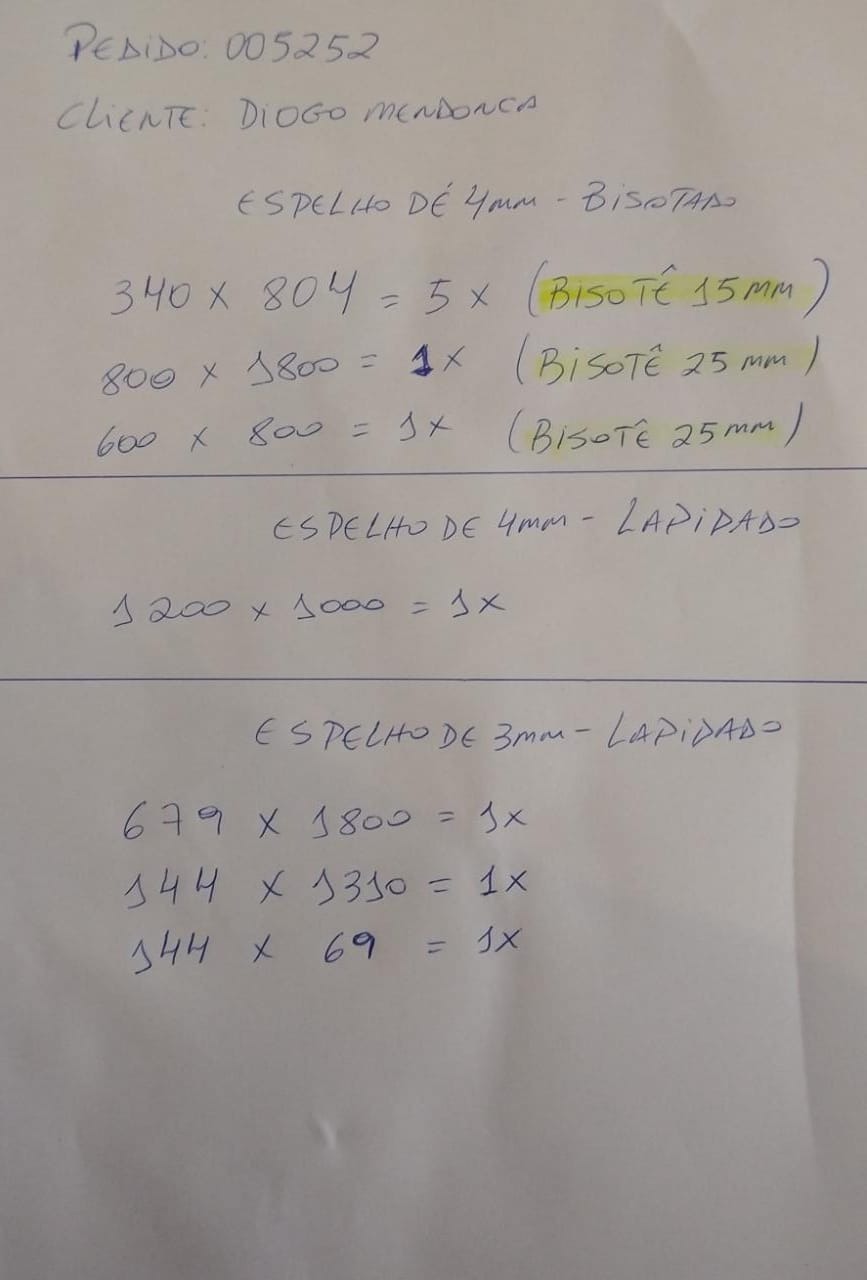 PEDIDO: 005252
CLIENTE: DIOGO MENDONCA
ESPELHO DÉ 4mm - BISOTADO
340 x 804 = 5 x (BISOTÊ 15 MM)
800 x 1800 = 1x (BISOTÊ 25 mm)
600 x 800 = 1x (BISOTÊ 25 mm)
ESPELHO DE 4mm - LAPIDADO
1200 x 1000 = 1x
ESPELHO DE 3mm - LAPIDADO
679 x 1800 = 1x
144 x 1310 = 1x
144 x 69 = 1x